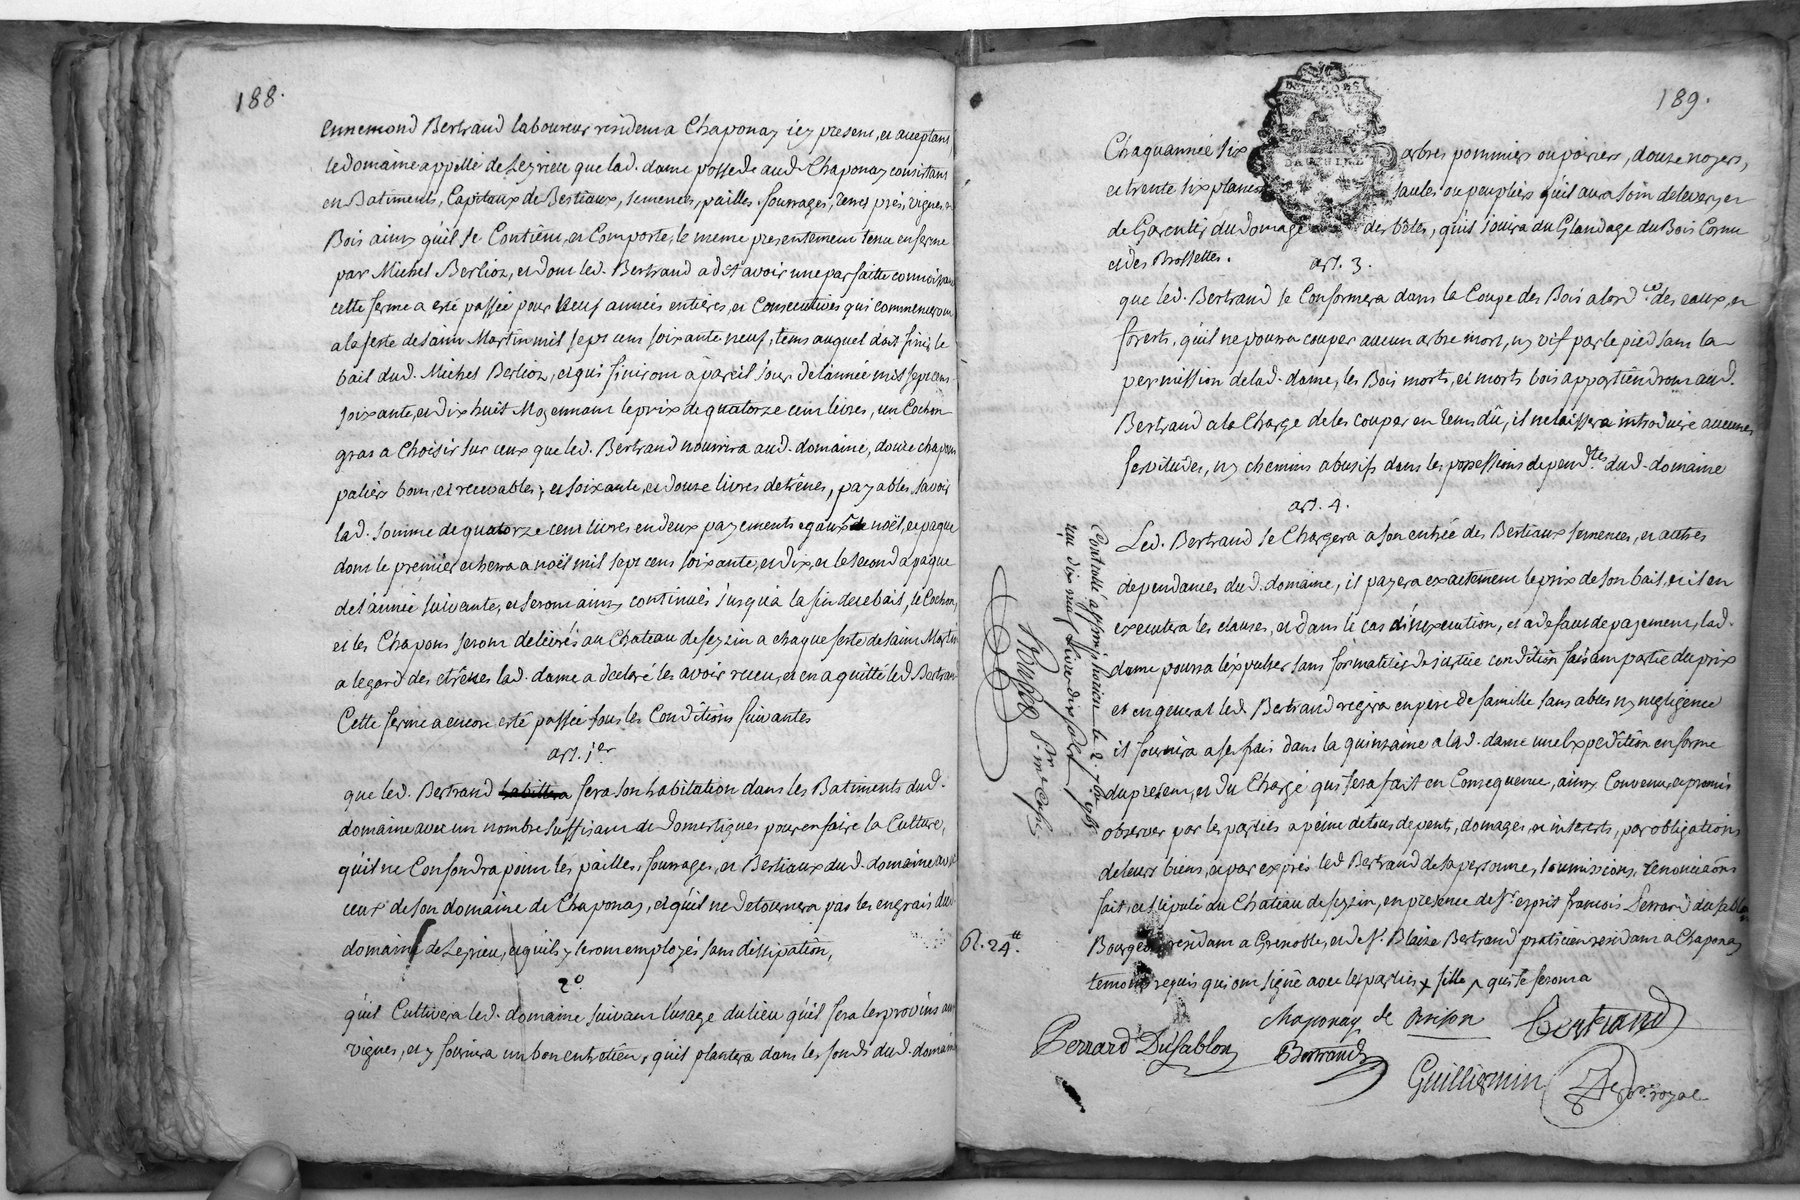 188.
Ennemond Bertrand laboureur residem a Chaponay icy present, et acceptant
le domaine appellé de Leyrieu que lad. dame possede aud Chaponay consistant
en Batiments, Capitaux de Bestiaux, semences, pailles, fourrages, terres, prés, vignes, et
Bois ainsy qu'il se Contient, et Comporte, le meme presentement tenu en ferme
par Michel Berlioz, et dont led. Bertrand a dit avoir une parfaitte connoissance
cette ferme a esté passée pour Neuf années entières, et Consecutives qui commenceront
a la feste de saint Martin mil sept cent soixante neuf, tems auquel doit finir le
bail dud. Michel Berlioz, et qui finiront à pareil jour de l'année mil sept cent
soixante, et dix huit Moyennant le prix de quatorze cent livres, un Cochon
gras a Choisir sur ceux que led. Bertrand nourrira aud. domaine, douze chapons
paliers bons, et recevables, et soixante, et douze livres detrenes, payables, savoir
lad. somme de quatorze cent livres en deux payements egaux noël, et paque
dont le premier echerra a noël mil sept cent soixante, et dix, et le second a paque
de l'année suivante, et seront ainsy continués jusqu'a la fin de ce bail, le Cochon,
et les Chapons seront delivrés au Chateau de seyzin a chaque feste de saint Martin
a legard des etrenes lad. dame a declaré les avoir receu, et en a quitté led Bertrand
Cette ferme a encore esté passée sous les Conditions suivantes
art. 1er
que led. Bertrand habittera fera son habitation dans les Batiments dud.
domaine avec un nombre suffisant de domestiques pour en faire la Culture,
qu'il ne Confondra point les pailles, fourrages, et Bestiaux dud. domaine avec
ceux de son domaine de Chaponay, et qu'il ne detournera pas les engrais dud
domaine de Leyrieu, et qu'ils y seront employés sans dissipation,
2°
qu'il Cultivera led. domaine suivant l'usage du lieu qu'il fera les provins aux
vignes, et y fournira un bon entretien, qu'il plantera dans les fonds dud. domaine
189.
DAUPHINE
Chaquannée six arbres pommiers ou poiriers, douze noyers,
et trente six plancons saules ou peupliers qu'il aura soin delever, et
de Garentir du domage des bêtes, qu'il jouira du Glandage du Bois Cornu
et des Brossettes.
art. 3.
que led. Bertrand se Conformera dans la Coupe des Bois a lordce des eaux, et
forests, qu'il ne pourra couper aucun arbre mort, ny vif par le pied sans la
permission de lad. dame, les Bois morts, et morts bois appartiendront aud.
Bertrand a la Charge de les couper en tems dû, il ne laissera introduire aucunes
servitudes, ny chemins abusifs dans les possessions dependtes dud. domaine
art. 4.
Led. Bertrand se Chargera a son entrée des Bestiaux semences, et autres
dependances dud. domaine, il payera exactement le prix de son bail, et il en
executera les clauses, et dans le cas d'inexecution, et a defaut de payement, lad.
dame pourra lexpulser sans formalités de justice condition faisant partie du prix
et en general led. Bertrand regira en pere de famille sans abus ny negligence
il fournira a ses frais dans la quinzaine a lad. dame une Expedition en forme
du present, et du Chargé qui sera fait en Consequence, ainsy Convenu, et promis
observer par les parties a peine de tous depents, domages, et interets, par obligations
de leurs biens, et par exprès led Bertrand de sa personne, soumissions, renonciaons
fait, et stipulé au Chateau de seyzin, en presence de sr. esprit francois Perrard du sablon
Bourgeois residant a Grenoble, et de sr. Blaize Bertrand praticien residant a Chaponay
temoins requis qui ont signé avec les parties
Chaponay de Bertrand
Perrard Dusablon Bertrand
Guilliermin nore. royal
R. 24#.